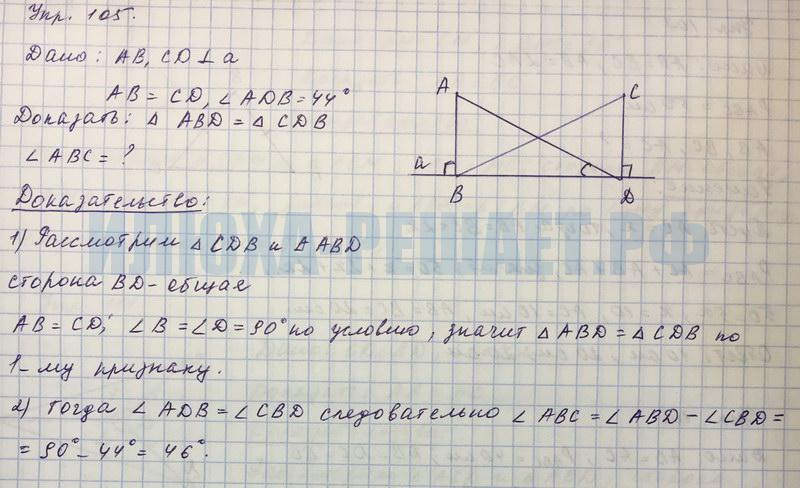 Упр. 105.
Дано: AB, CD ⊥ a
AB = CD, ∠ ADB = 44°
Доказать: △ ABD = △ CDB
∠ ABC = ?
A
C
a
B
D
Доказательство:
1) Рассмотрим △ CDB и △ ABD
сторона BD - общая
AB = CD; ∠ B = ∠ D = 90° по условию, значит △ ABD = △ CDB по
1-му признаку.
2) Тогда ∠ ADB = ∠ CBD следовательно ∠ ABC = ∠ ABD - ∠ CBD =
= 90° - 44° = 46°.
ИПОХА-РЕШАЕТ.РФ